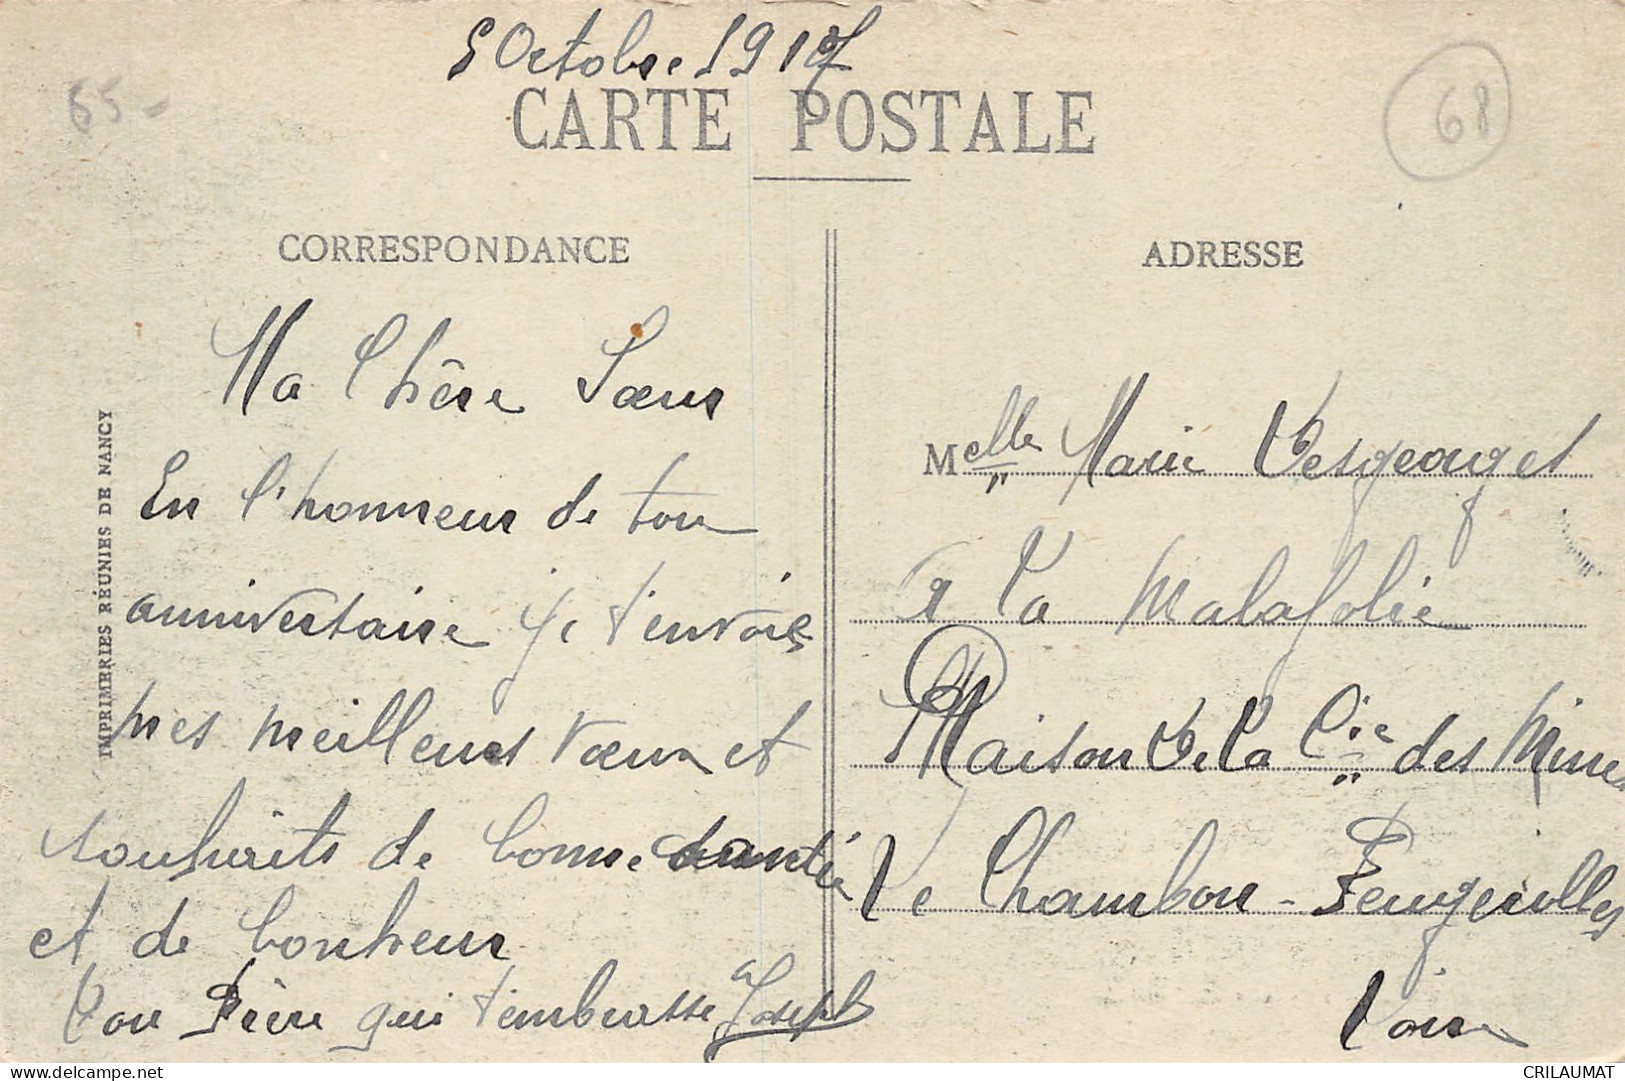 5 Octobre 1917
65-
68
CARTE POSTALE
CORRESPONDANCE
ADRESSE
IMPRIMERIES RÉUNIES DE NANCY
Ma Chère Sœur
En l'honneur de ton
anniversaire je t'envoie
mes meilleurs vœux et
souhaits de bonne santée
et de bonheur
Ton Frère qui t'embrasse Joseph
Melle Marie Desgeorges
a la Malafolie
Maison de la Cie des Mines
Le Chambon-Feugerolles
Loire
CRILAUMAT